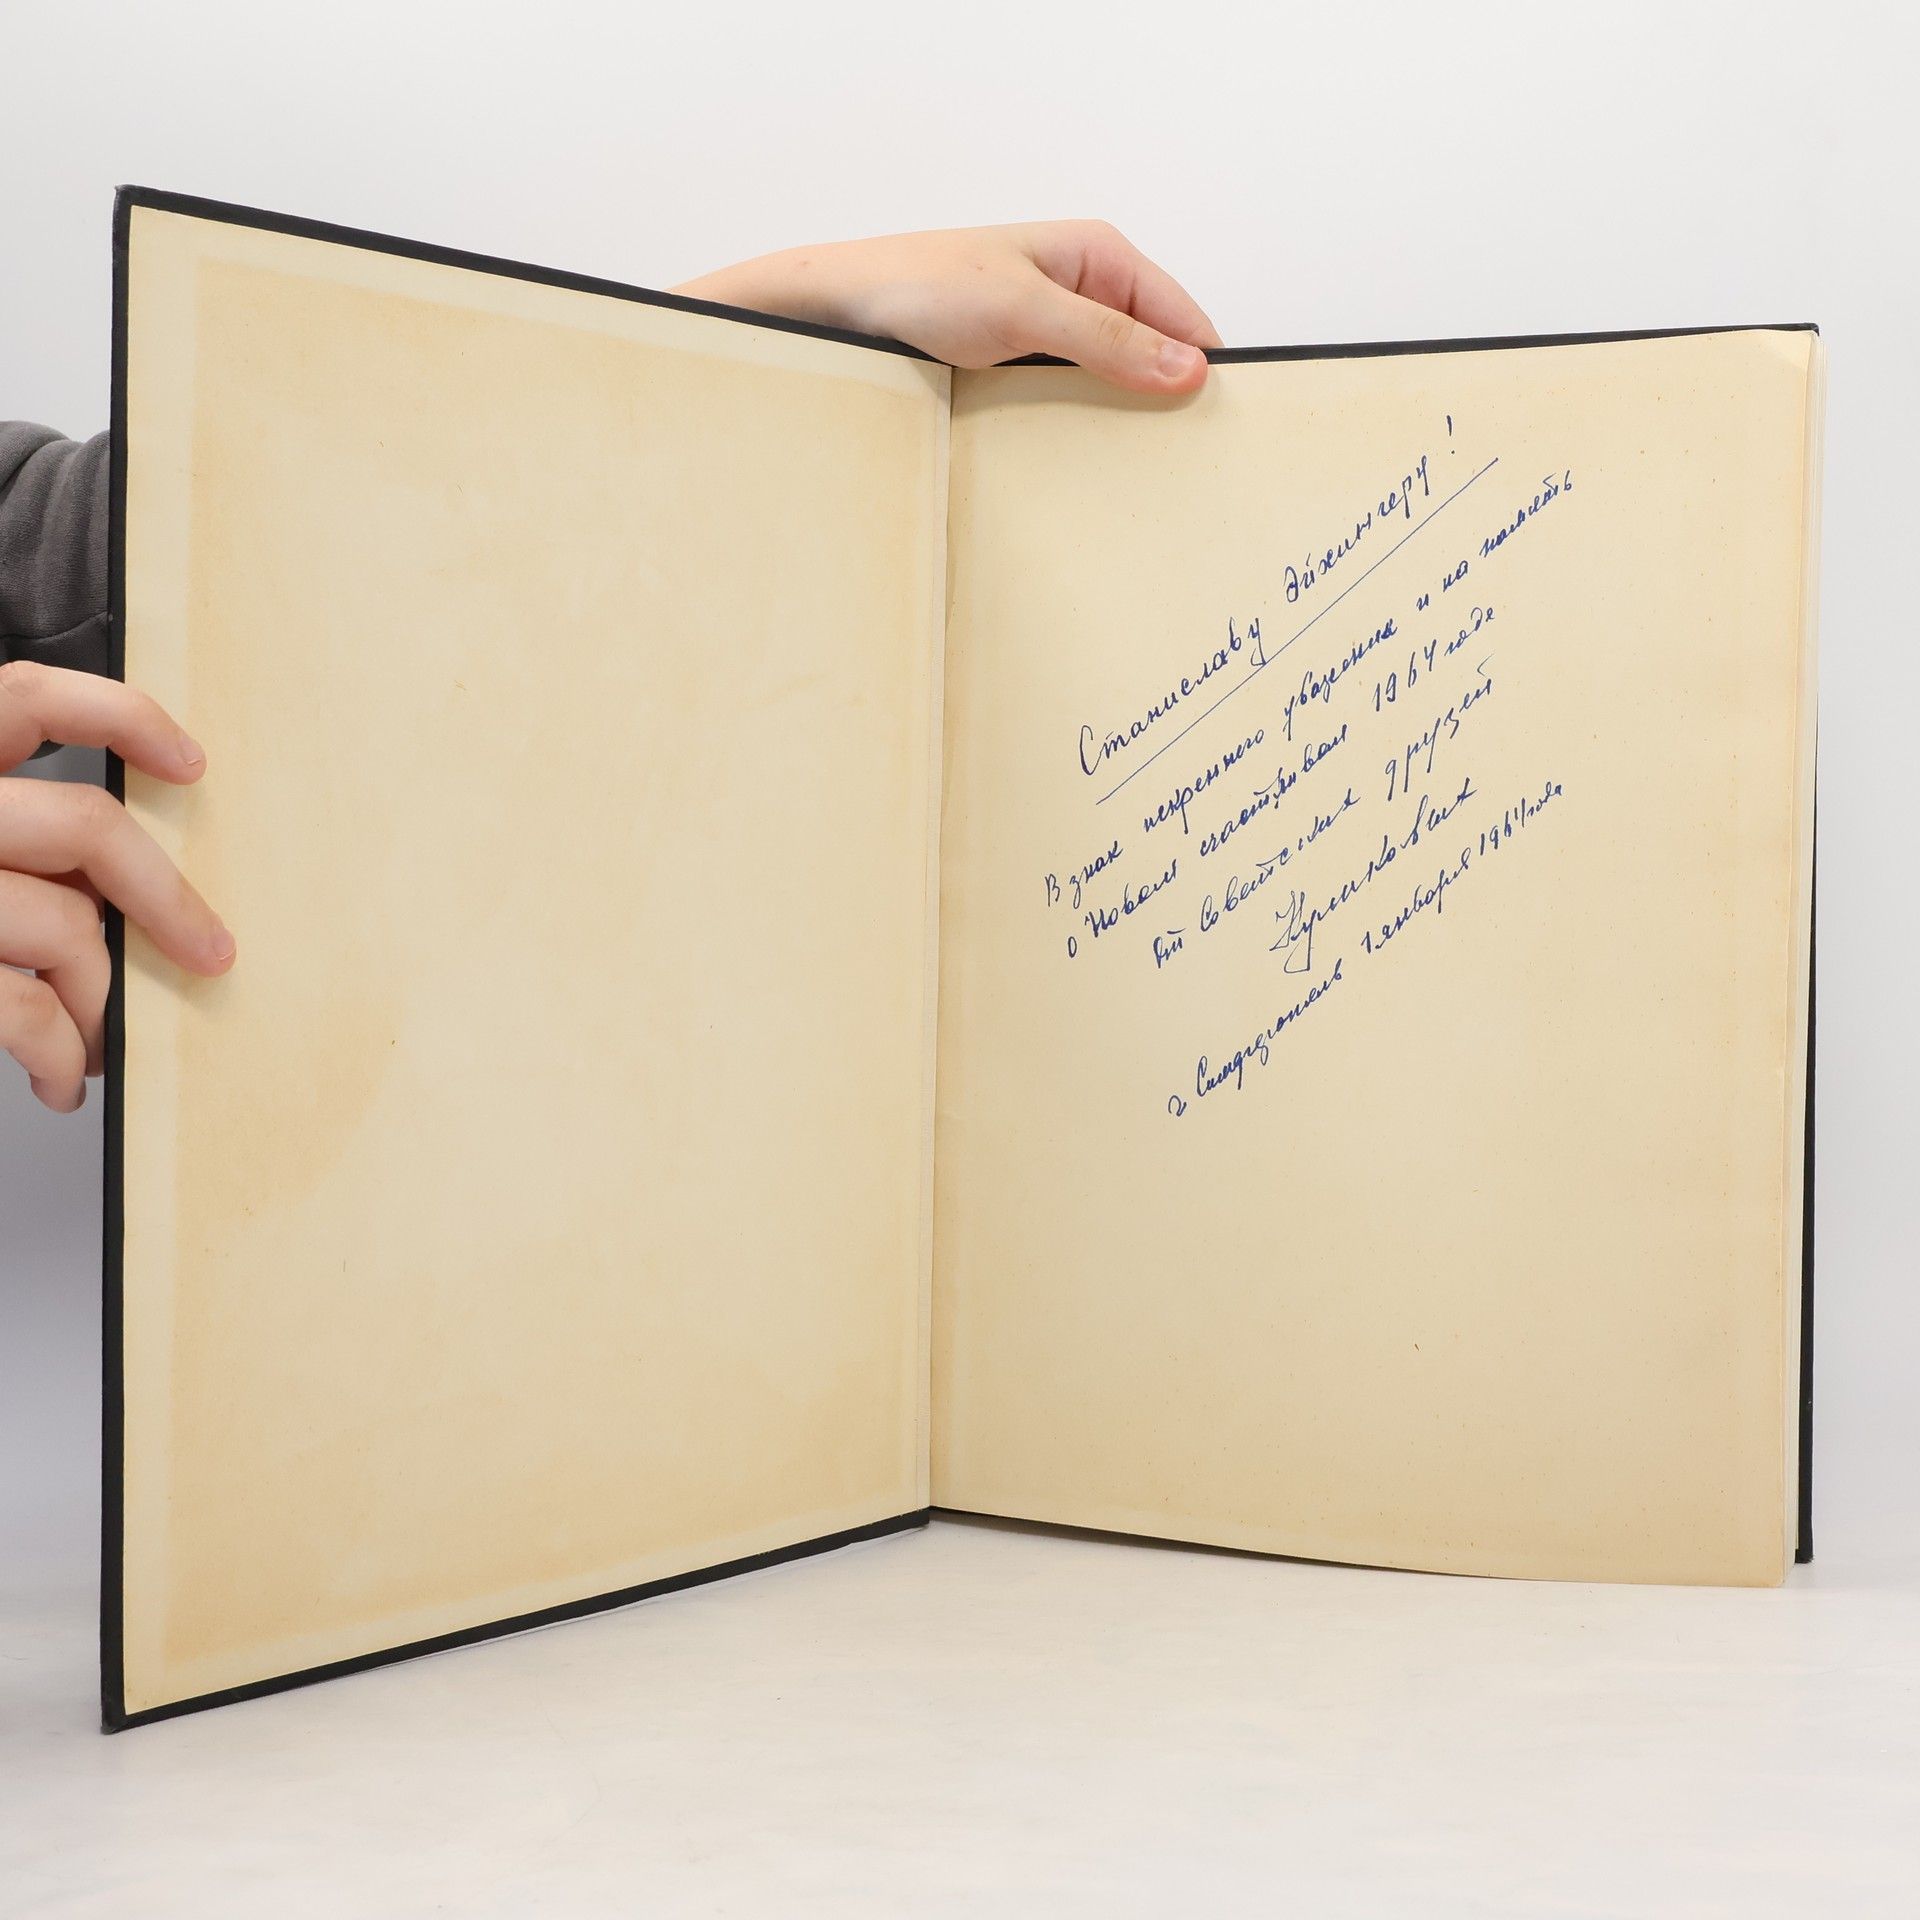 Станиславу Эйхингеру!
В знак искреннего уважения и на память
о Новом счастливом 1964 годе
от Советских друзей
г Симферополь 1 января 1964 года